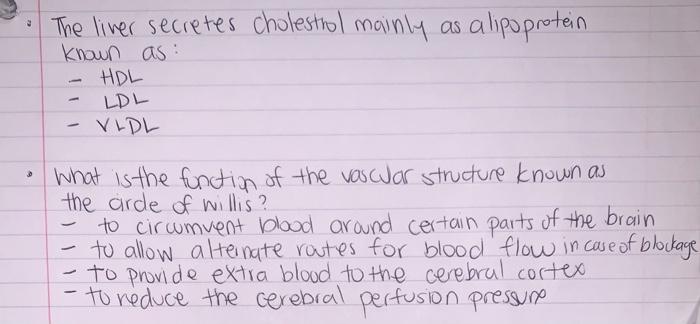 • The liver secretes cholestrol mainly as a lipoprotein
known as:
- HDL
- LDL
- VLDL
• What is the function of the vascular structure known as
the circle of willis?
- to circumvent blood around certain parts of the brain
- to allow alternate routes for blood flow in case of blockage
- to provide extra blood to the cerebral cortex
- to reduce the cerebral perfusion pressure